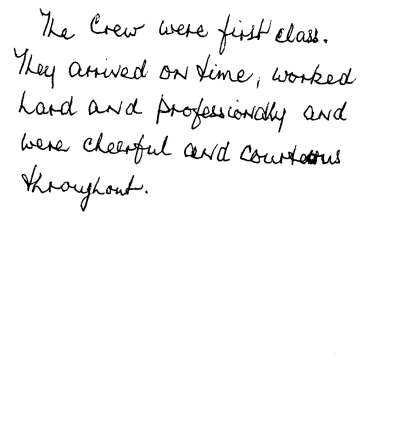 The Crew were first class.
They arrived on time, worked
hard and professionally and
were cheerful and courteous
throughout.